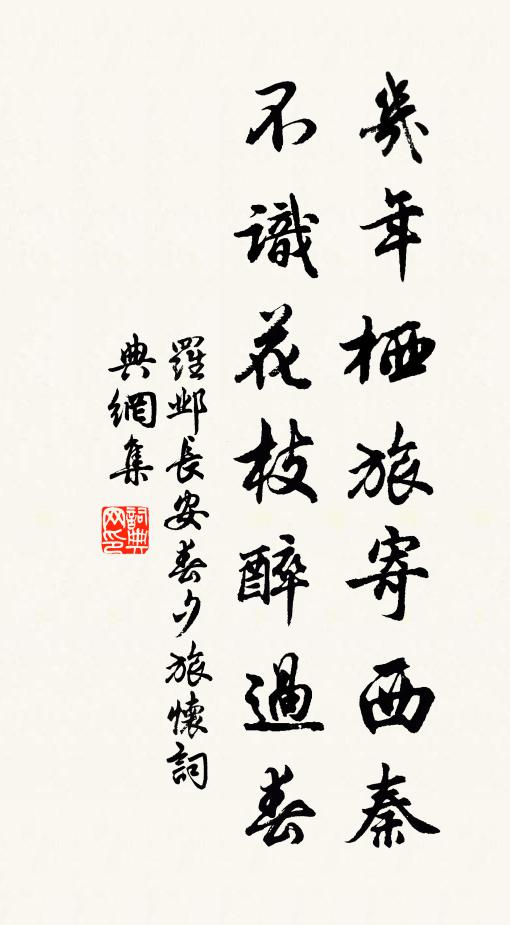 幾年栖旅寄西秦
不識花枝醉過春
羅鄴長安春夕旅懷詞
典網集
詞典网印